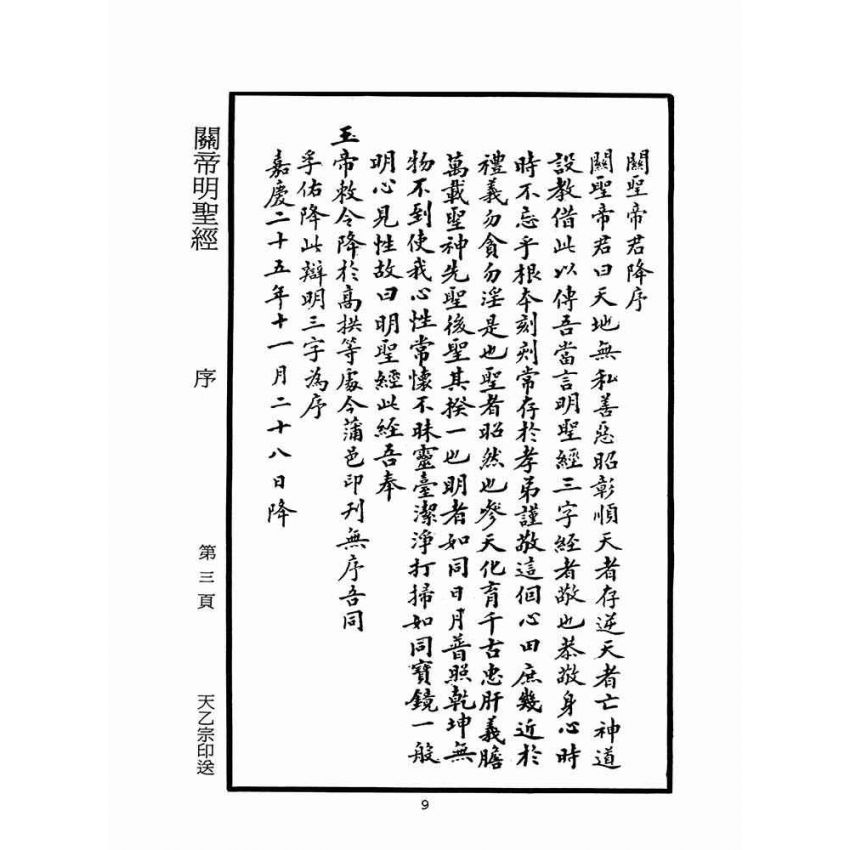 關聖帝君降序
關聖帝君曰天地無私善惡昭彰順天者存逆天者亡神道
設教借此以傳吾當言明聖經三字經者敬也恭敬身心時
時不忘乎根本刻刻常存於孝弟謹敬這個心田庶幾近於
禮義勿貪勿淫是也聖者昭然也參天化育千古忠肝義膽
萬載聖神先聖後聖其揆一也明者如同日月普照乾坤無
物不到使我心性常懷不昧靈臺潔淨打掃如同寶鏡一般
明心見性故曰明聖經此經吾奉
玉帝敕令降於高拱等處今蒲邑印刊無序吾同
孚佑降此辯明三字為序
嘉慶二十五年十一月二十八日降
關帝明聖經 序 第三頁 天乙宗印送
9